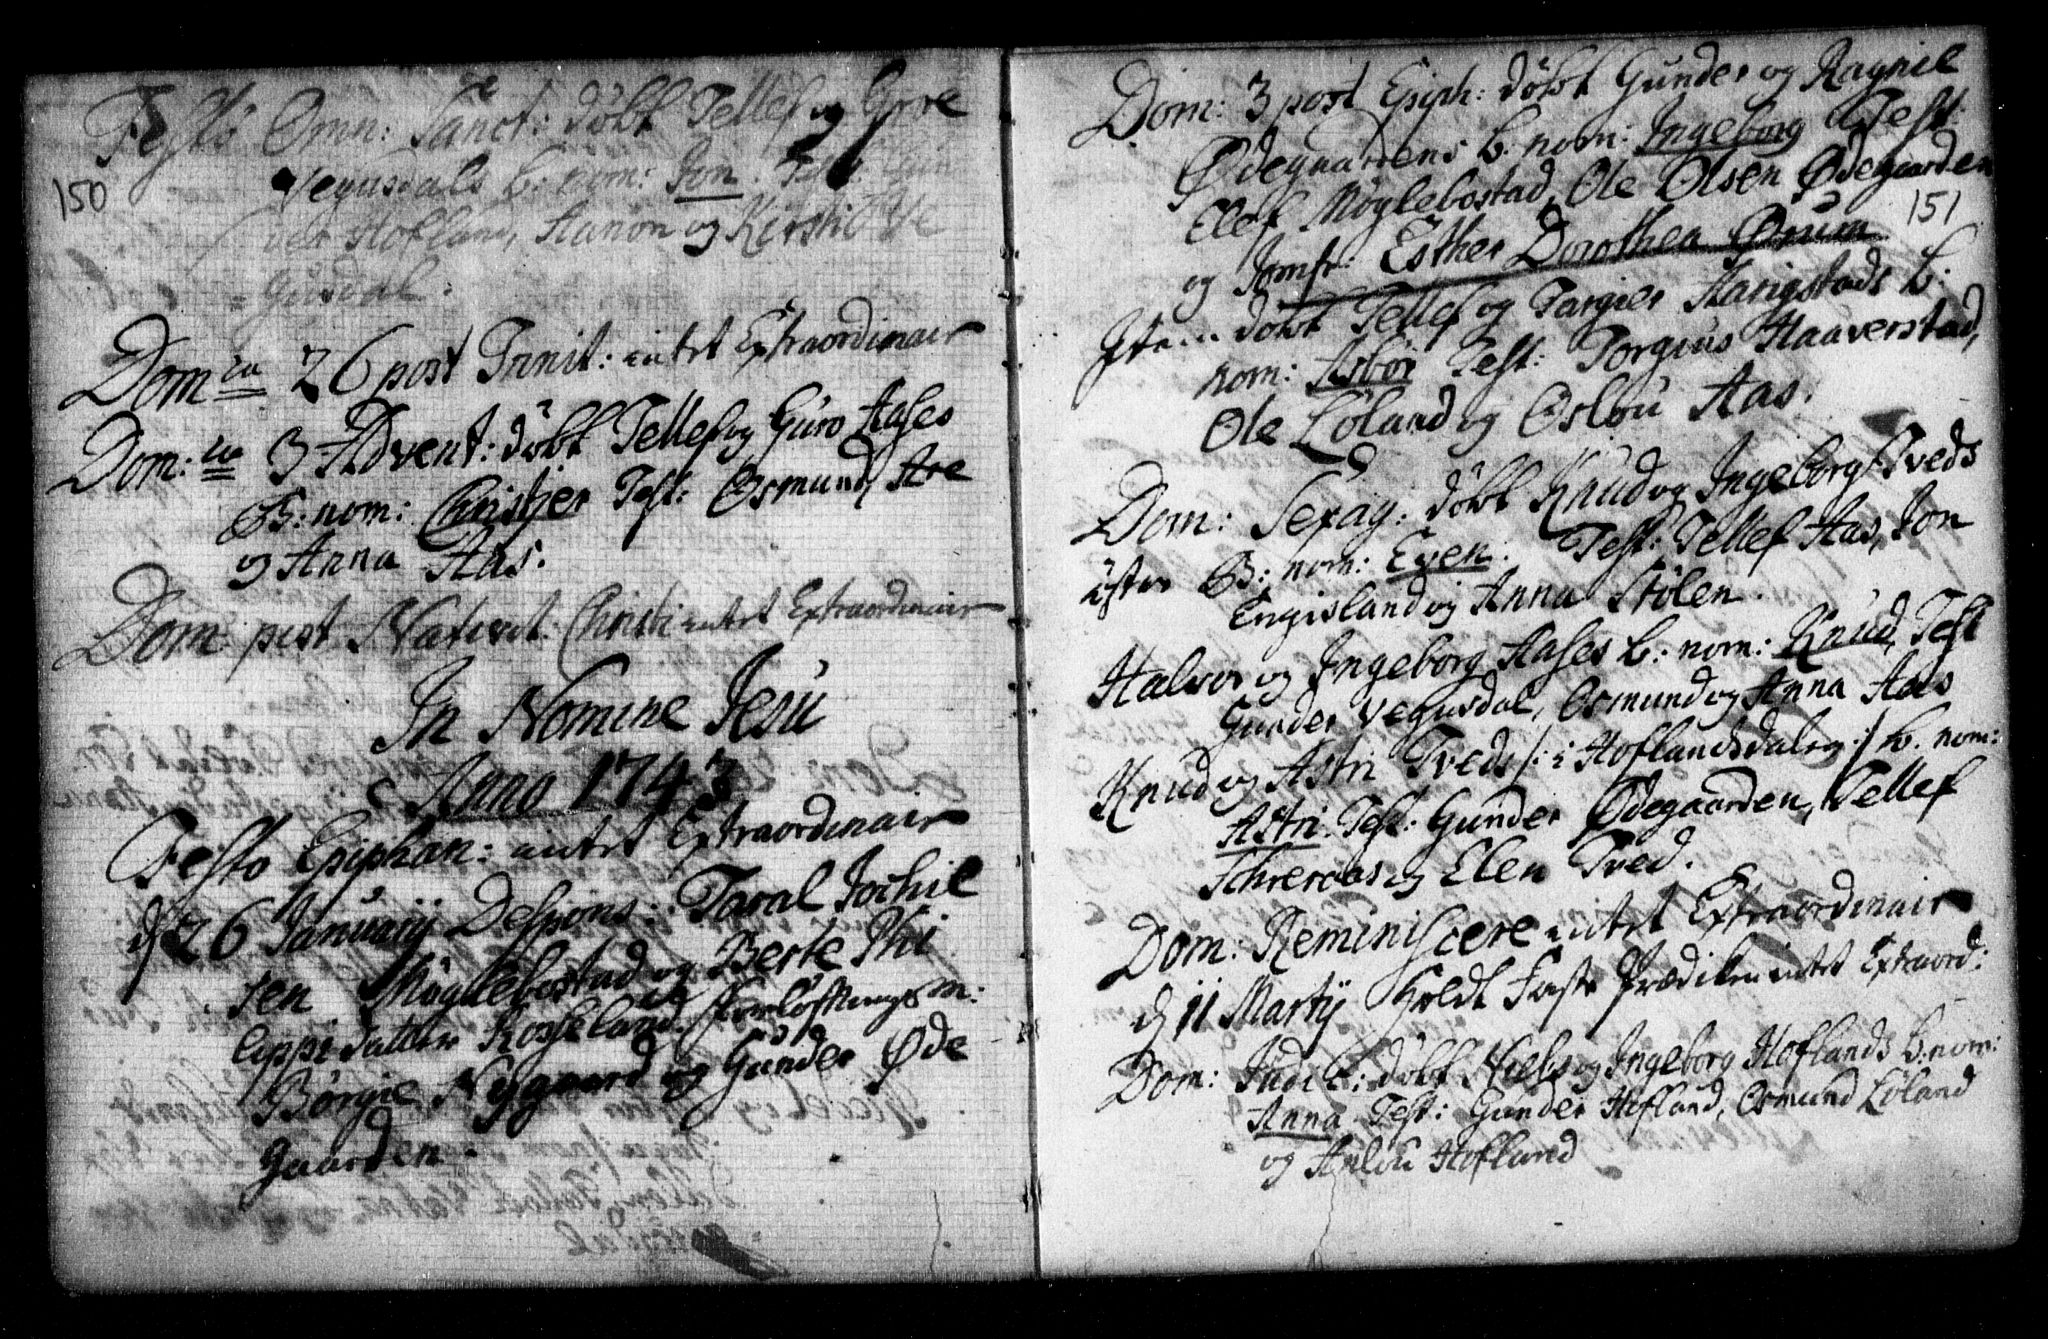 150
Festo Omn: Sanct: døbt Tellef og Groe
Vegusdals b: nom: Jon. Test: Gun
der Hofland, Aanon og Kirsti Ve
= Gusdal.
Dom ca 26 post Trinit: intet Extraordinair
Dom: ca 3 Advent: døbt Tellef og Guro Aases
B: nom: Christen Test: Osmund, Are
og Anna Aas.
Dom post Nativit. Christi intet Extraordinair
In Nomine Jesu
Anno 1743
Festo Epiphan: intet Extraordinair
d 26 Januarij Despons: Taral Jochil
sen Møglebostad og Berte Phi
lippsdatter Rosseland. Forløftnings m:
Børgie Nygaard og Gunder Øde
Gaarden.
Dom: 3 post Epiph: døbt Gunder og Ragnil
Ødegaardens b. nom: Ingeborg Test:
Elef Møglebostad, Ole Olsen Ødegaarden
151
og Jomfr: Esther Dorothea Ørum
Item døbt Tellef og Targier Harigstads b.
nom: Asbor Test: Torgius Haaverstad,
Ole Løland og Oslou Aas.
Dom: Sexag: døbt Knud og Ingeborg Tveds
B: nom: Even. Test: Tellef Aas, Jon
Engisland og Anna Stølen.
Halvor og Ingeborg Aases b: nom: Knud, Test
Gunder Vegusdal, Osmund og Anna Aas
Knud og Astri Tveds /: i Hoflandsdalen :/ b. nom:
Astri. Test: Gunder Ødegaarden, Tellef
Schreraas og Elen Tved.
Dom: Reminiscere intet Extraordinair
d 11 Martij holdt Faste Prædiken intet Extraord:
Dom: Judic: døbt Niels og Ingeborg Hoflands b: nom:
Anna Test: Gunder Hofland, Osmund Løland
og Anlou Hofland